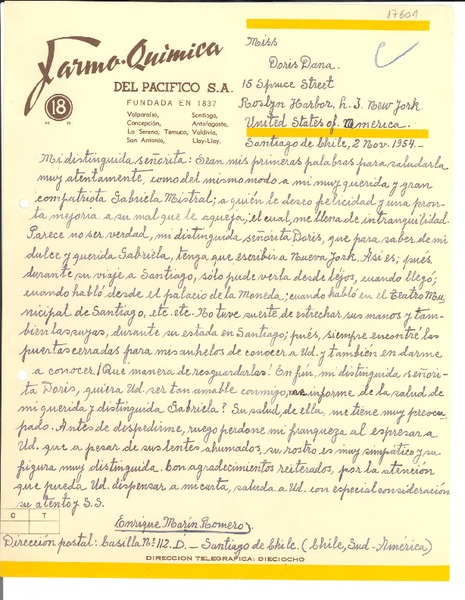 17601
Farmo-Química
DEL PACIFICO S.A.
FUNDADA EN 1837
18
M R
Valparaíso, Santiago,
Concepción, Antofagasta,
La Serena, Temuco, Valdivia,
San Antonio, Llay-Llay.
Miss
Doris Dana.
15 Spruce Street
Roslyn Harbor, h. I. New York.
United States of America.
Santiago de Chile, 2 Nov. 1954.-
Mi distinguida señorita: Sean mis primeras palabras para saludarla
muy atentamente, como del mismo modo a mi muy querida y gran
compatriota Gabriela Mistral; a quién le deseo felicidad y una pron-
ta mejoría a su mal que le aqueja; el cual, me llena de intranquilidad.
Parece no ser verdad, mi distinguida señorita Doris, que para saber de mi
dulce y querida Gabriela, tenga que escribir a Nueva York. Así es; pués,
durante su viaje a Santiago, sólo pude verla desde lejos, cuando llegó;
cuando habló desde el palacio de la Moneda; cuando habló en el Teatro Mu-
nicipal de Santiago, etc. etc. No tuve suerte de estrechar sus manos y tam-
bien las suyas, durante su estada en Santiago; pués, siempre encontré las
puertas cerradas para mis anhelos de conocer a Ud. y también en darme
a conocer ¡Que manera de resguardarlas! En fin, mi distinguida señori-
ta Doris, quiera Ud. ser tan amable conmigo, me informe de la salud de
mi querida y distinguida Gabriela? Su salud, de ella, me tiene muy preocu-
pado. Antes de despedirme, ruego perdone mi franqueza al expresar a
Ud. que a pesar de sus lentes ahumados, su rostro es muy simpático y su
figura muy distinguida. Con agradecimientos reiterados, por la atención
que pueda Ud. dispensar a mi carta, saluda a Ud. con especial consideración
su atento y S.S.
C T
Enrique Marín Romero.
Dirección postal: Casilla Nº 112. D. - Santiago de Chile. (Chile, Sud-América)
DIRECCION TELEGRAFICA: DIECIOCHO